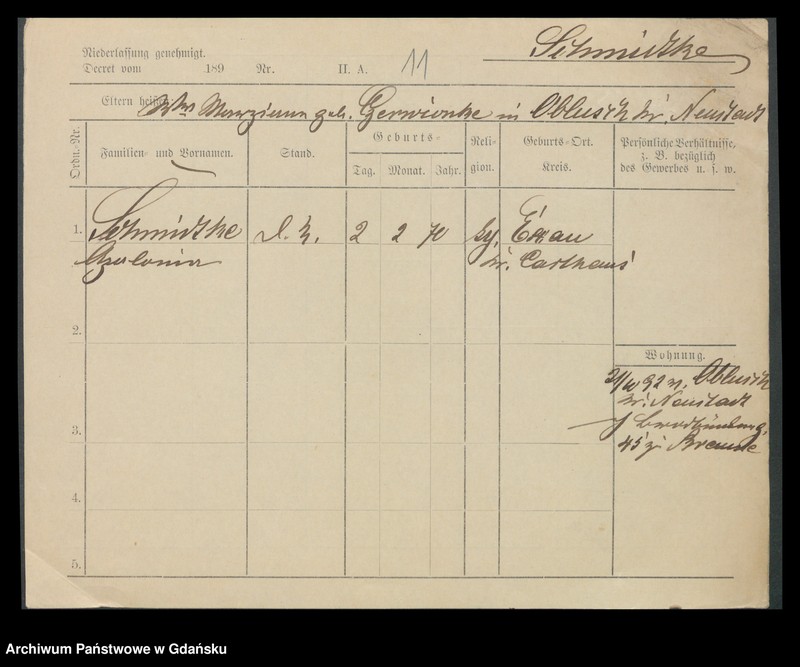 Schmidtke
Niederlassung genehmigt.
Decret vom 189 Nr. II. A. 11
Eltern heißen: Wwe Marzianna geb. in Oblusch Kr. Neustadt
Ordn.-Nr.
Familien- und Vornamen.
Stand.
Geburts-
Tag. Monat. Jahr.
Religion.
Geburts-Ort.
Kreis.
Persönliche Verhältnisse,
z. B. bezüglich
des Gewerbes u. s. w.
1. Schmidtke 2 2 70
Apolonia Kr. Carthaus
2.
Wohnung.
92 v. Oblusch
Kr. Neustadt
3.
45 z.
4.
5.
Archiwum Państwowe w Gdańsku